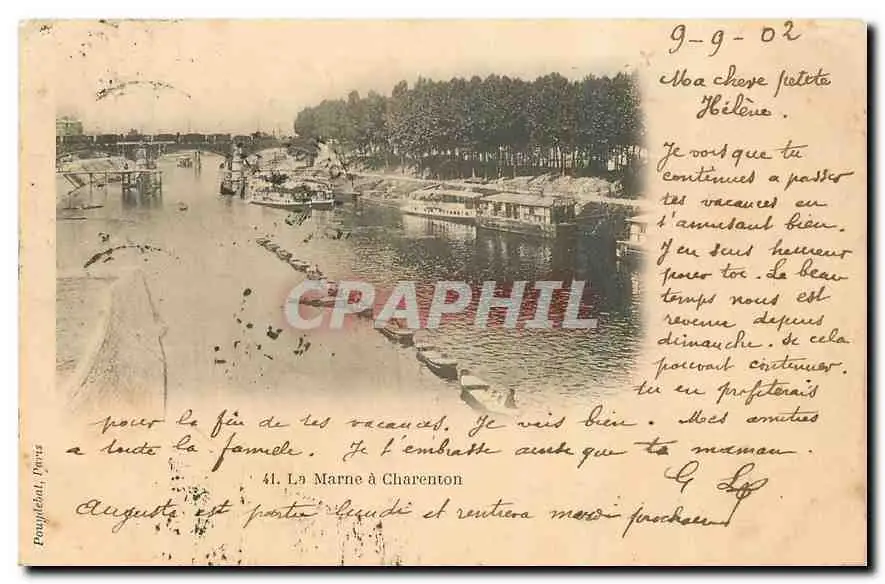 9-9-02
Ma chere petite
Hélène.
Je vois que tu
continues a passer
tes vacances en
t'amusant bien.
J'en suis heureux
pour toi. Le beau
temps nous est
revenu depuis
dimanche. Si cela
pouvait continuer.
tu en profiterais
pour la fin de tes vacances. Je vais bien. Mes amitiés
a toute la famille. Je t'embrasse ainsi que ta maman.
41. La Marne à Charenton
Auguste est partie lundi et rentrera mardi prochain
CPAPHIL
Pouydebat, Paris